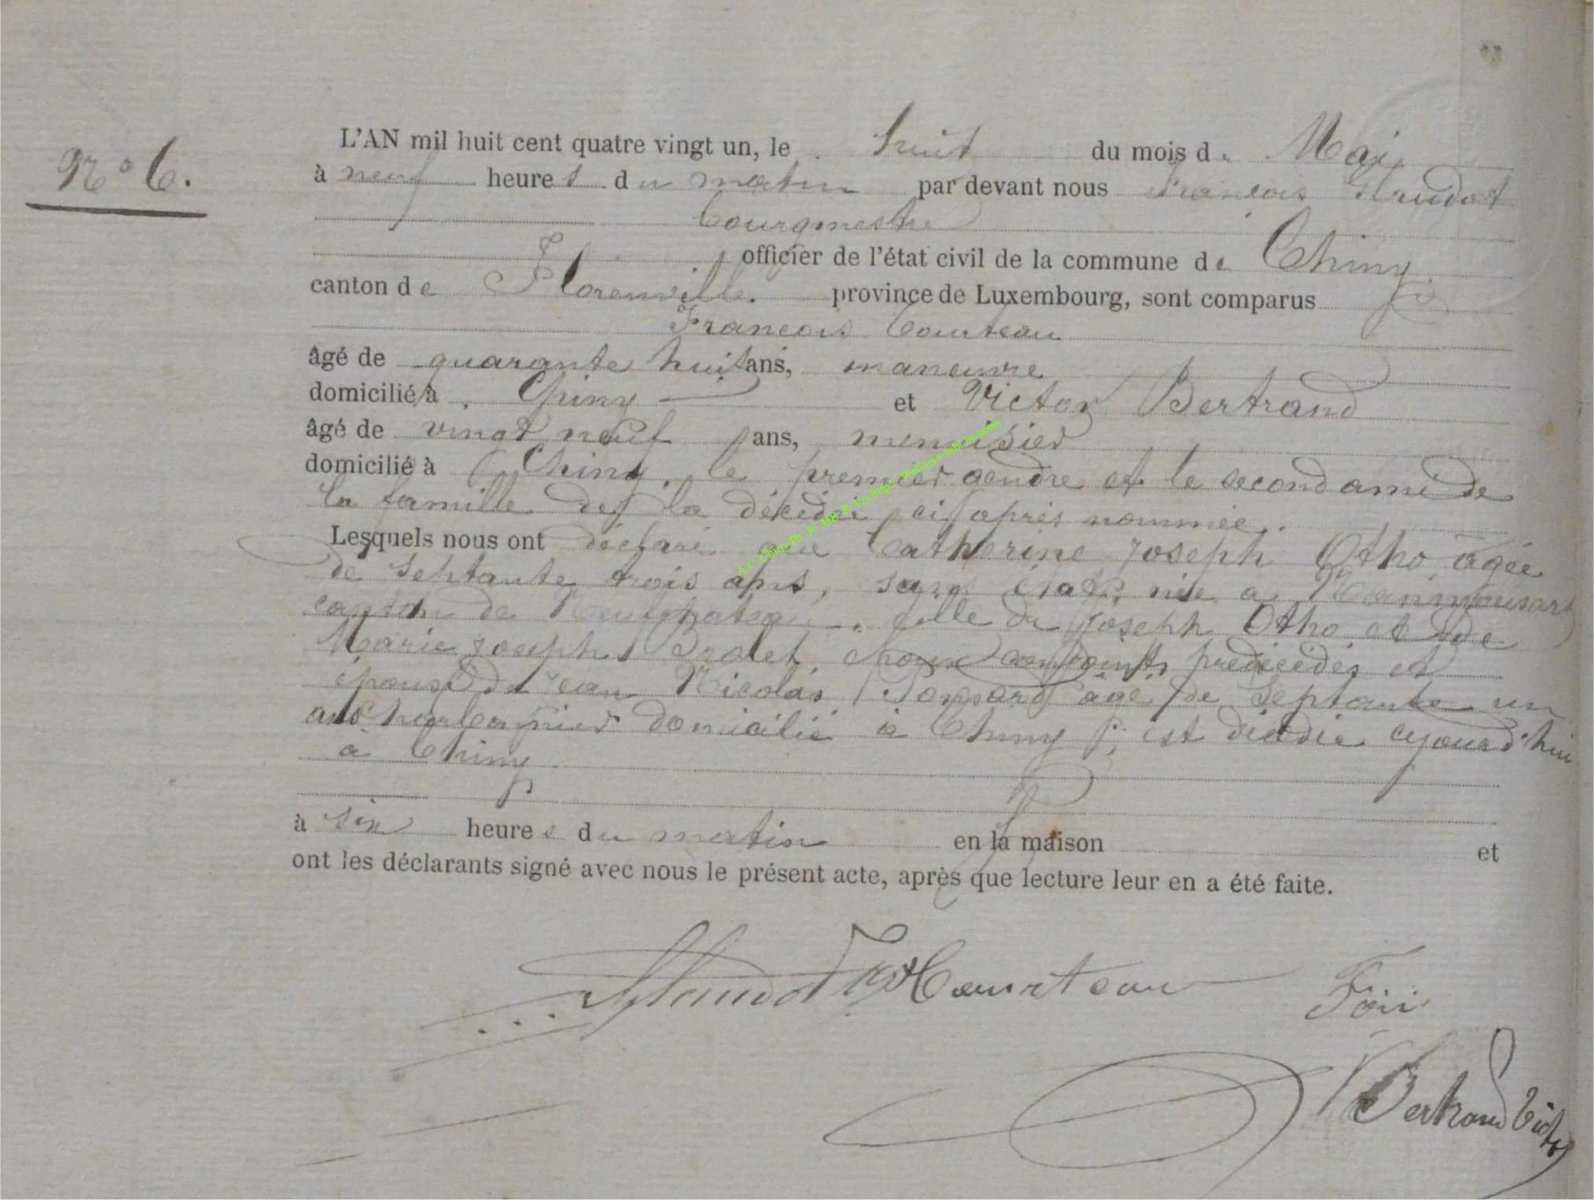 N° 6.
L'AN mil huit cent quatre vingt un, le huit du mois de Mai
à neuf heures du matin par devant nous François
bourgmestre
officier de l'état civil de la commune de Chiny
canton de Florenville province de Luxembourg, sont comparus
François Courteau
âgé de quarante huit ans, manœuvre
domicilié à Chiny et Victor Bertrand
âgé de vingt neuf ans, menuisier
domicilié à Chiny, le premier gendre et le second ami de
la famille de la décédée ci après nommée.
Lesquels nous ont déclaré que Catherine Joseph Otho agée
de septante trois ans, sans état, née à
canton de Neufchateau, fille de Joseph Otho et de
Marie Joseph conjoints prédécédés et
épouse de Jean Nicolas Ponsard âgé de septante un
ans domicilié à Chiny, est décédée aujourd'hui
à Chiny
à six heures du matin en la maison et
ont les déclarants signé avec nous le présent acte, après que lecture leur en a été faite.
Courteau
Bertrand Victor